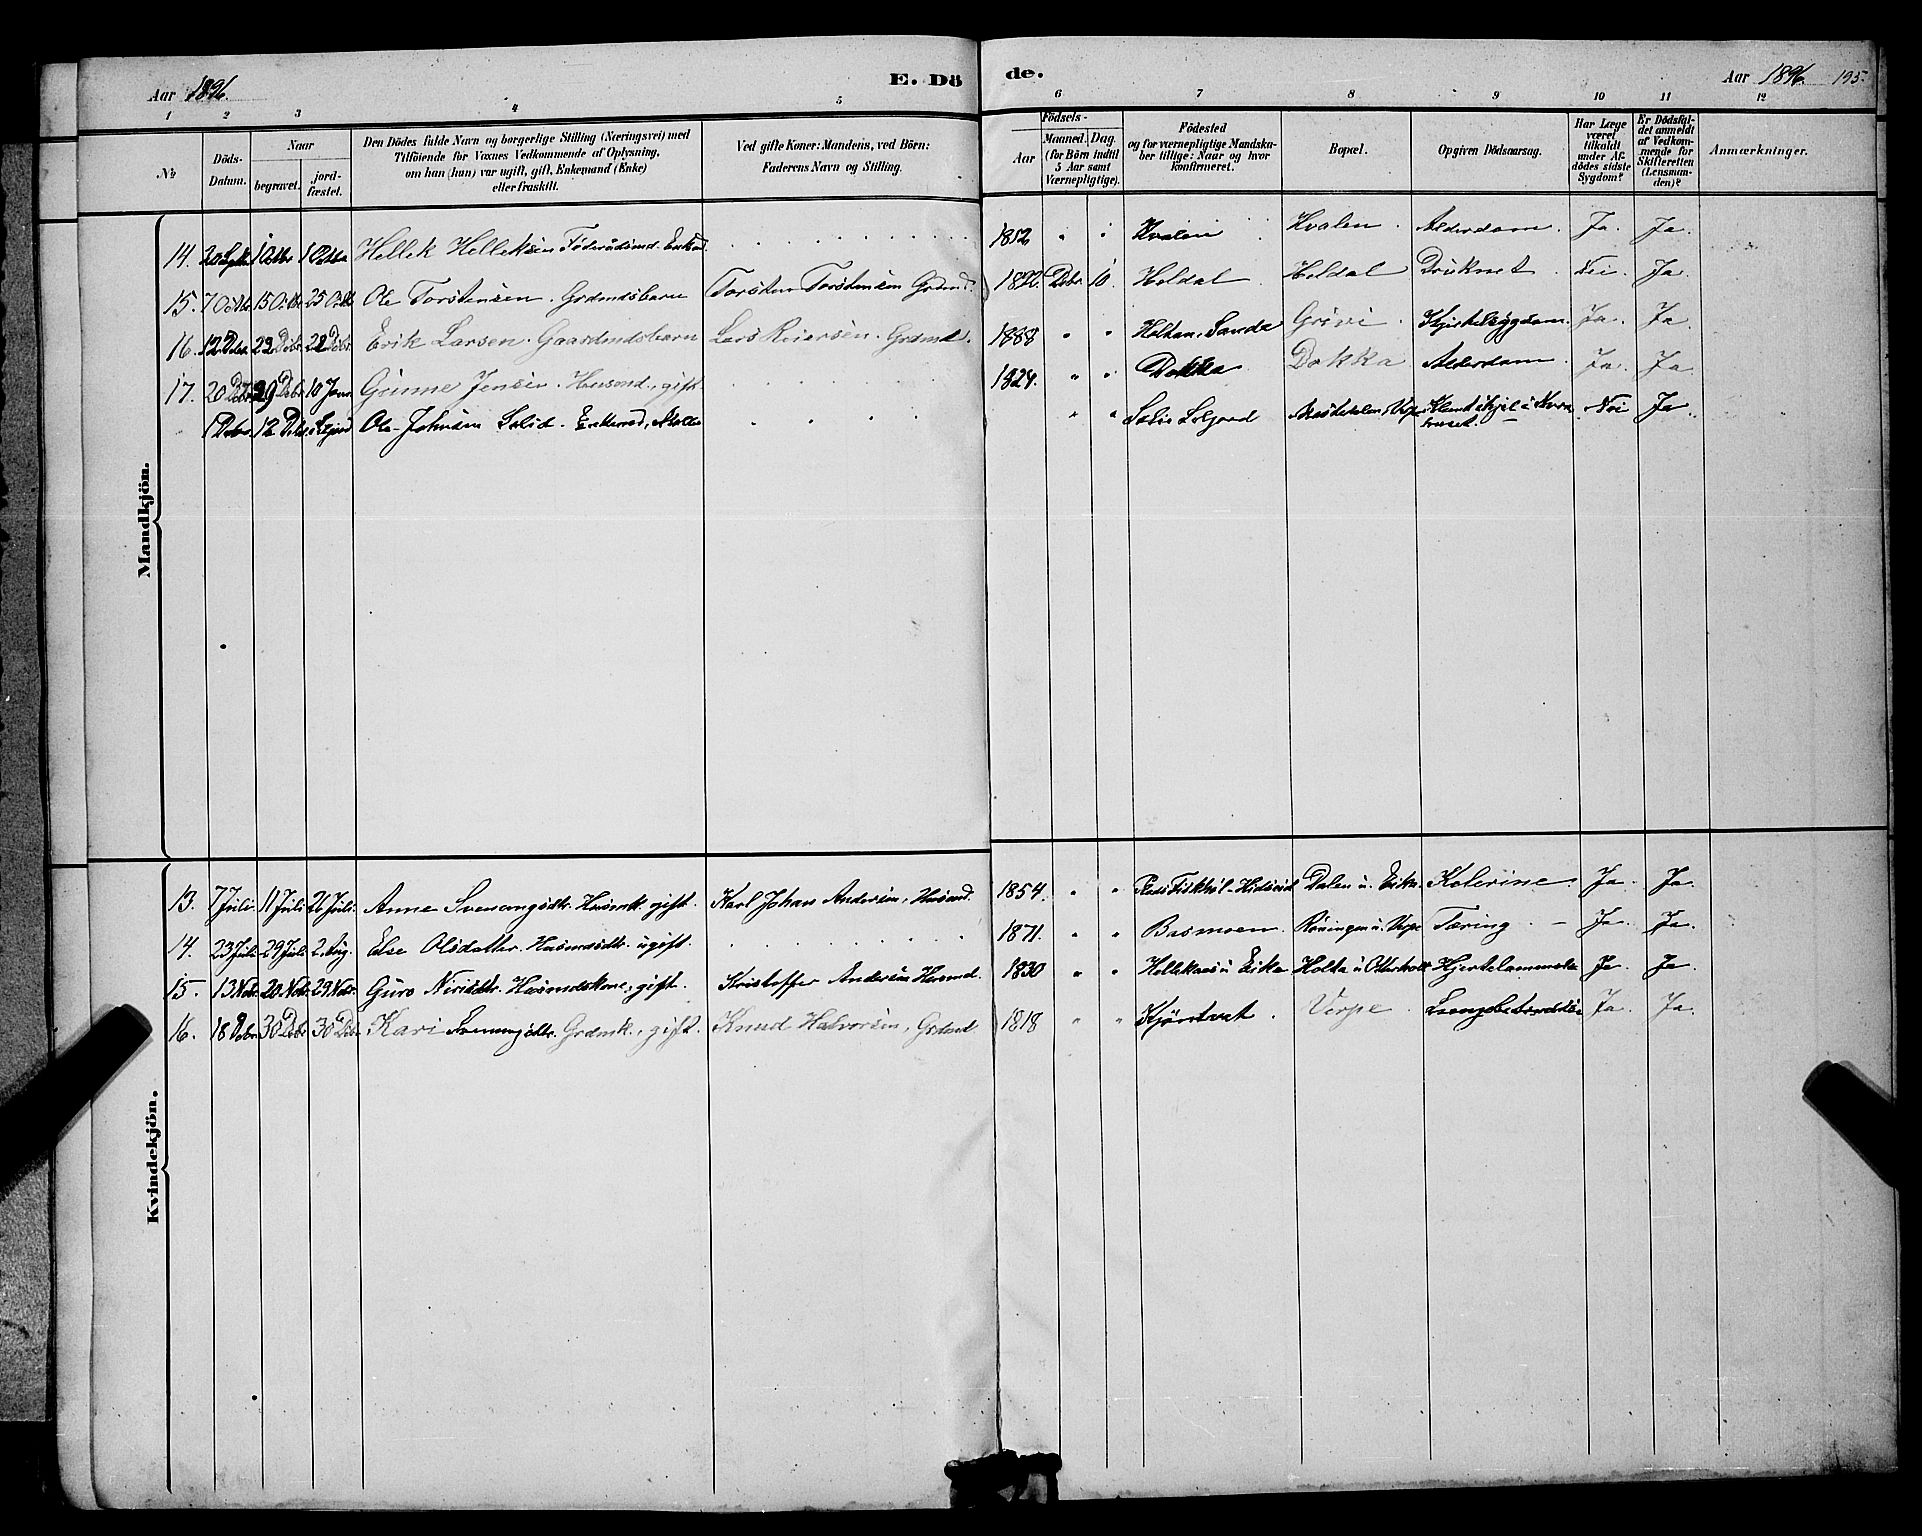 Aar 1896. E. Dö de. Aar 1896. 195.
1 2 3 4 5 6 7 8 9 10 11 12
№ Döds-Datum. Naar begravet. jord-fæstet. Den Dödes fulde Navn og borgerlige Stilling (Næringsvei) med Tilföiende for Voxnes Vedkommende af Oplysning, om han (hun) var ugift, gift, Enkemand (Enke) eller fraskilt. Ved gifte Koner: Mandens, ved Börn: Faderens Navn og Stilling. Födsels- Aar Maaned. Dag. (for Börn indtil 5 Aar samt Værnepligtige). Födested og for værnepligtige Mandskaber tillige: Naar og hvor konfirmeret. Bopæl. Opgiven Dödsaarsag. Har Læge været tilkaldt under Afdödes sidste Sygdom? Er Dödsfaldet anmeldt af Vedkommende for Skifteretten (Lensmanden)? Anmærkninger.
Mandkjön.
14. Hellek Helleksen Hvalen Hvalen. Alderdom. Ja. Ja.
15. 7 Octbr 15 Octbr 25 Octbr Ole Torstensen. Grdmdsbarn Torsten Torstensen Grdmd. Debr 10. Heldal Heldal Druknet Nei. Ja.
16. 12 Debr 22 Debr 22 Debr Erik Larsen. Gaardmdsbarn Lars Reiersen. Grdmd. 1888 " " Sande Grivi Ja. Ja.
17. 20 Debr 29 Debr 10 Janr. Gunne Jensen. Husmd., gift. 1824. " " Dokka Dokka Alderdom. Ja. Ja.
1 Debr 12 Debr Ole Johnsen Enkemd, " " Nei Ja.
Kvindekjön.
13. 7 Juli 11 Juli 26 Juli Anne Svenungsdtr. Husmk. gift. Karl Johan Andersen, Husmd. 1854. " " Dalen u. Eika. Kolerine. Ja. Ja.
14. 23 Juli 29 Juli 2 Aug. Else Olsdatter. Husmdsdtr. ugift. 1871. " " Basmoen. Röningen u. Verpe Tæring. Ja. Ja.
15. 13 Nobr. 20 Nobr 29 Nobr. Guro Nirisdtr. Husmdskone, gift. Kristoffer Andersen Husmd. 1830 " " Hellekaas u Eika Holta u Otterholt Hjertelammelse Ja. Ja.
16. 18 Debr 30 Debr 30 Debr. Kari Svenungsdtr. Grdmk., gift. Knud Halvorsen, Grdmd 1818 " " Verpe. Lungebetændelse Ja. Ja.